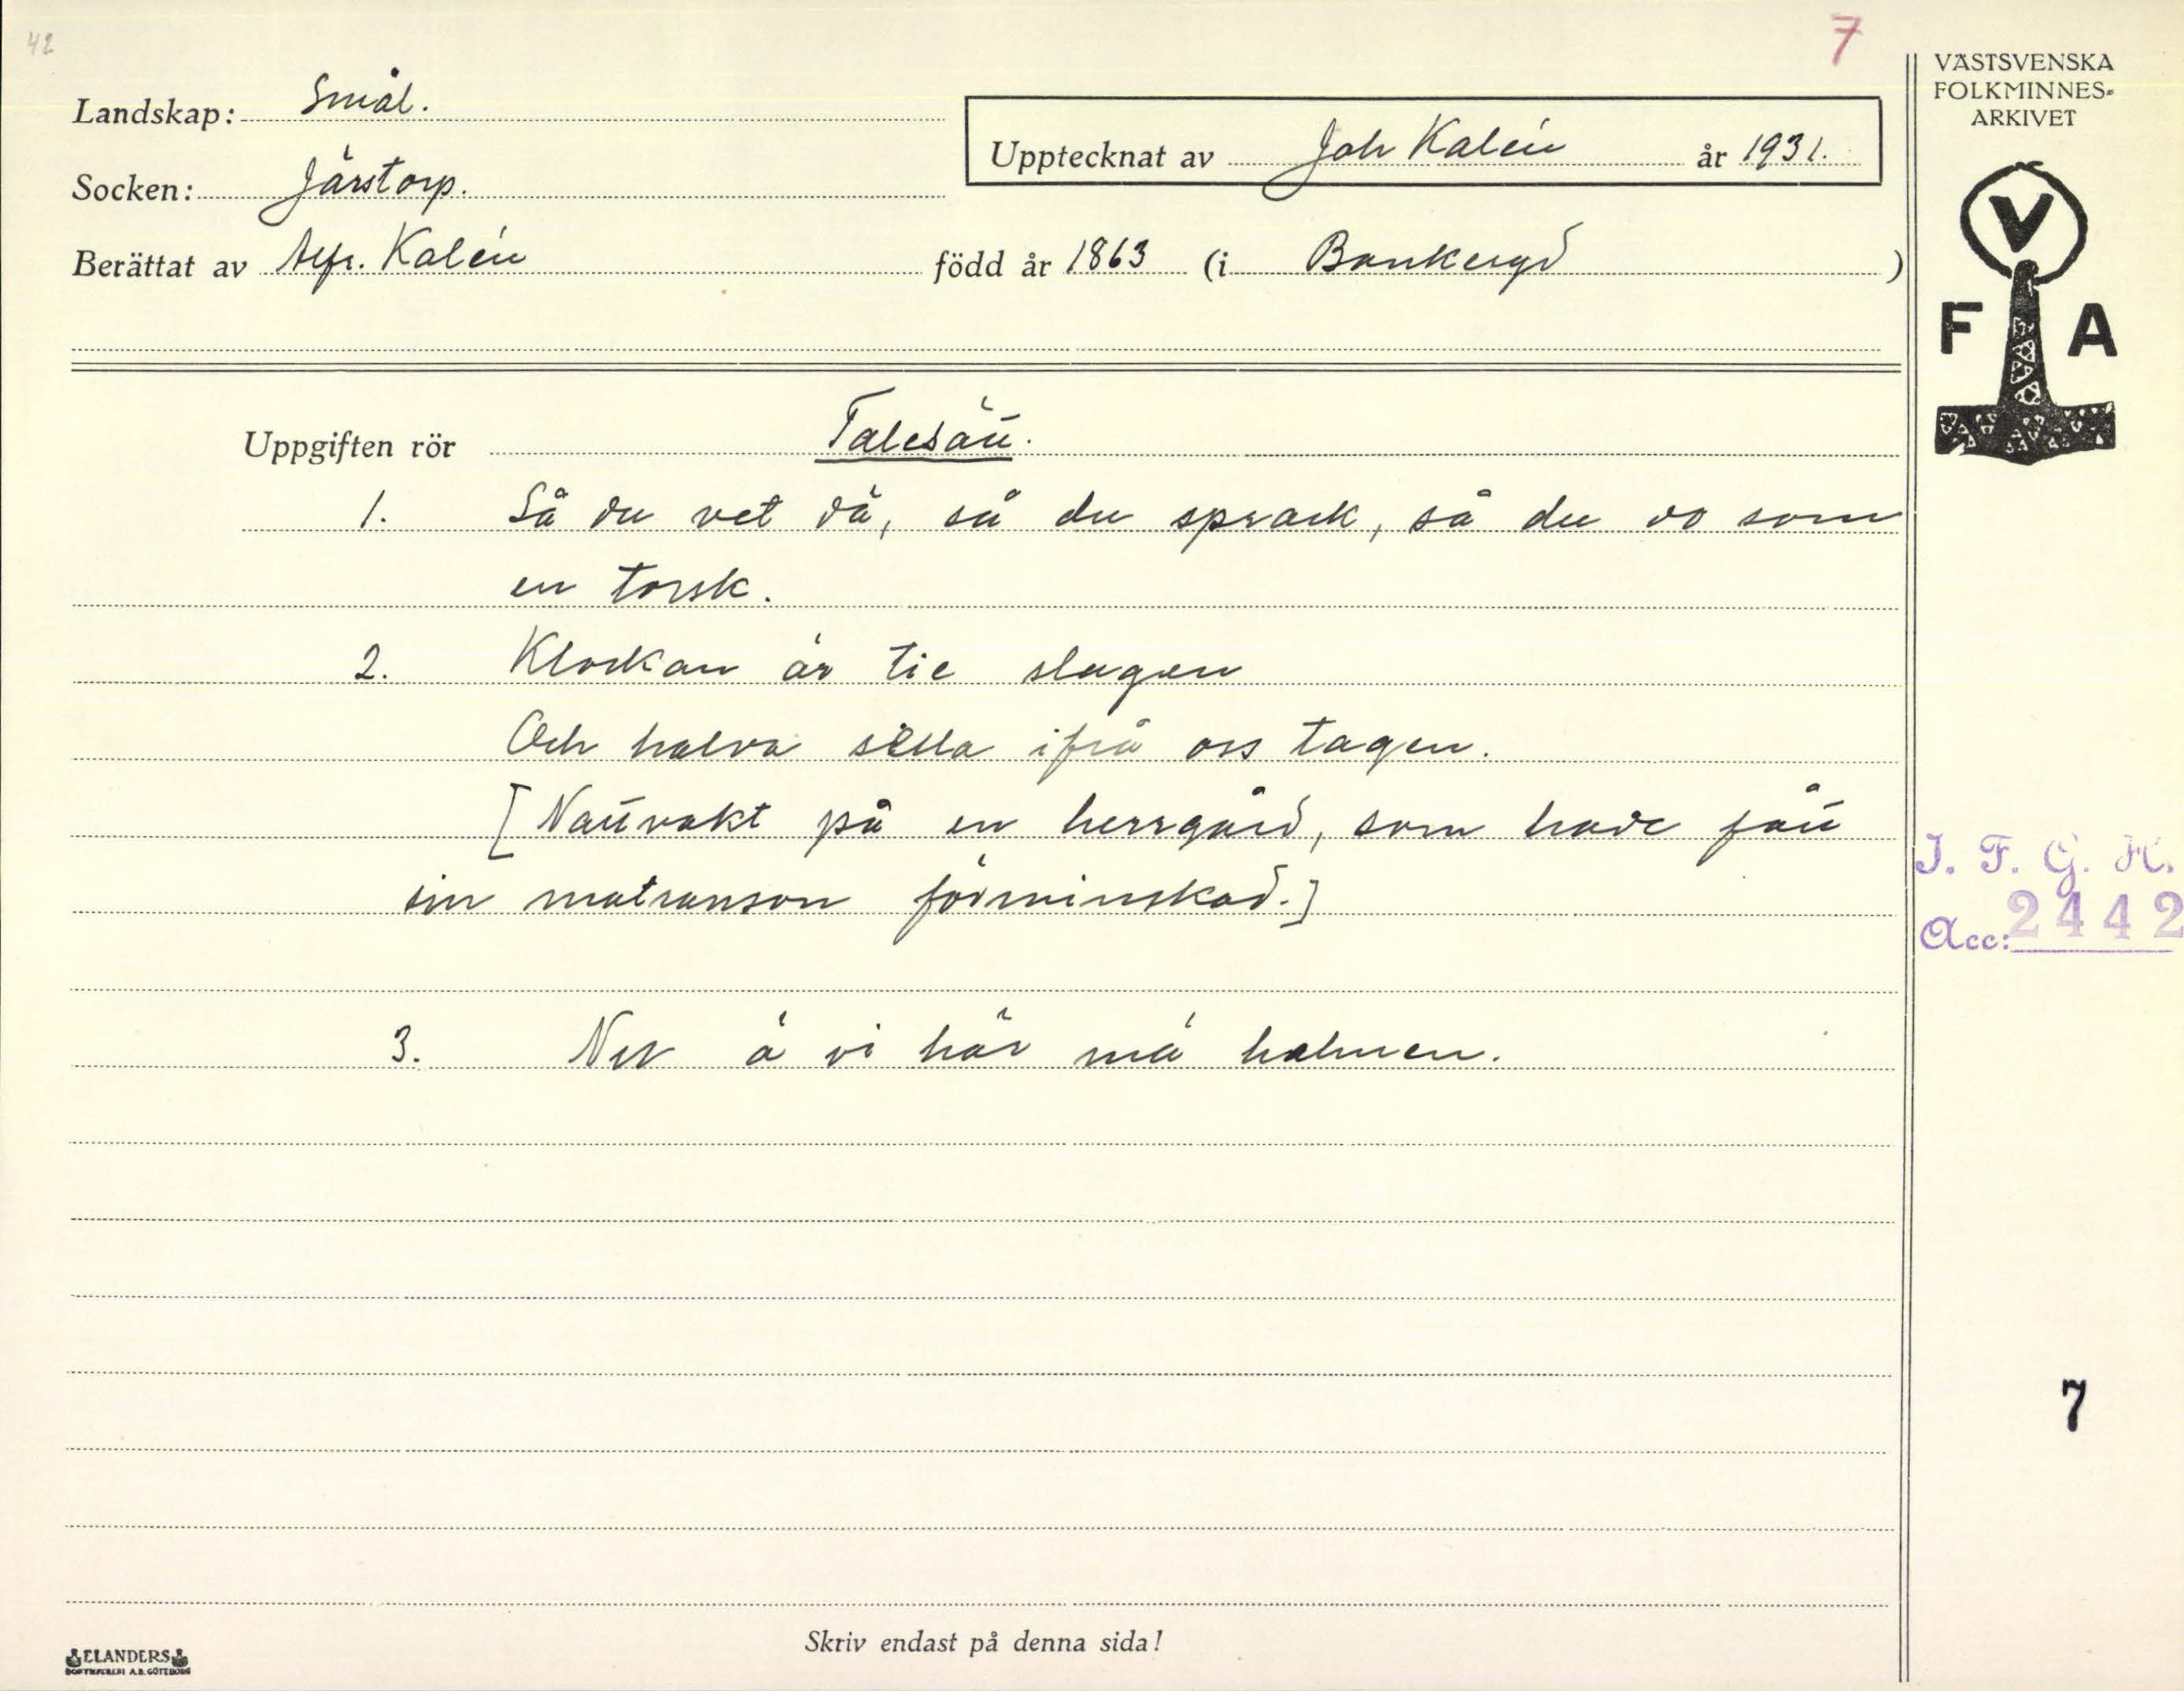 42
7
VÄSTSVENSKA
FOLKMINNES-
ARKIVET
Landskap: Smål.
Upptecknat av Joh Kalén år 1931.
Socken: Järstorp.
Berättat av Alfr. Kalén född år 1863 (i Bankeryd)
V
F A
Uppgiften rör Talesätt.
1. Så du vet dä, sa du sprack, så du do som
en torsk.
2. Klockan är tie slagen
Och halva sella ifrå oss tagen.
[Nattvakt på en herrgård, som hade fått
sin matranson förminskad.]
3. Nu ä vi här mä halmen.
I. F. G. H.
Acc: 2442
7
Skriv endast på denna sida!
ELANDERS
BOKTRYCKERI A.B. GÖTEBORG